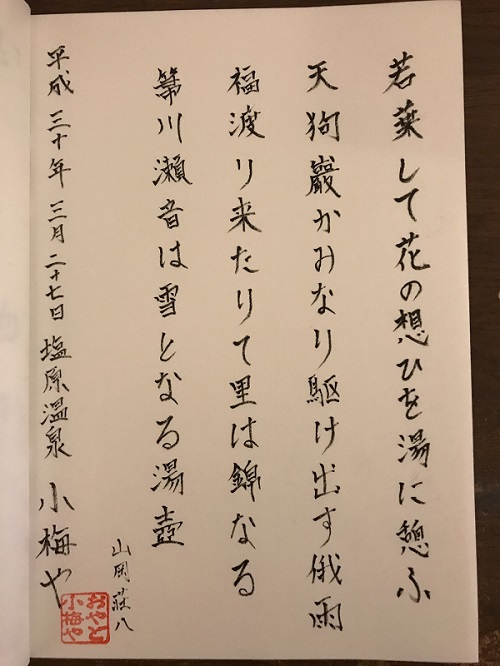 若葉して花の想ひを湯に憩ふ
天狗巖かみなり駆け出す俄雨
福渡り来たりて里は錦なる
箒川瀬音は雪となる湯壺
山岡荘八
平成三十年三月二十七日塩原温泉 小梅や
おやど
小梅や